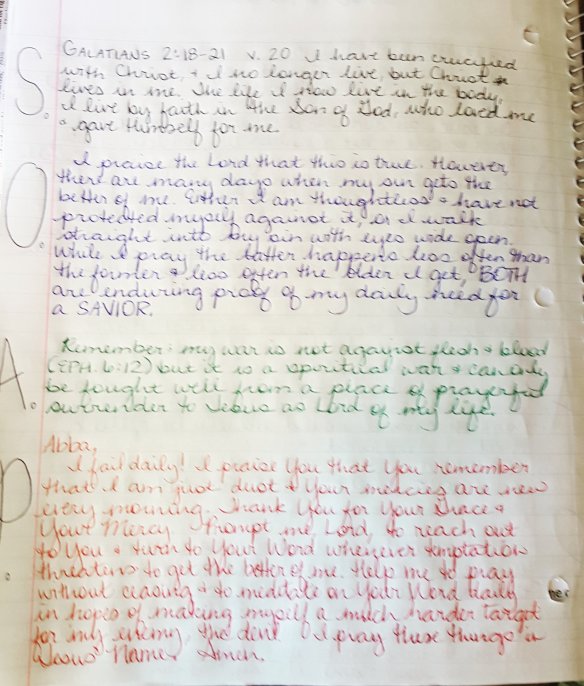 S.
GALATIANS 2:18-21 v. 20 I have been crucified
with Christ, & I no longer live, but Christ
lives in me. The life I now live in the body,
I live by faith in the Son of God, who loved me
& gave Himself for me.
O.
I praise the Lord that this is true. However,
there are many days when my sin gets the
better of me. Either I am thoughtless & have not
protected myself against it, or I walk
straight into my sin with eyes wide open.
While I pray the latter happens less often than
the former & less often the older I get, BOTH
are enduring proof of my daily need for
a SAVIOR.
A.
Remember: my war is not against flesh & blood
(EPH. 6:12) but it is a spiritual war & can only
be fought well from a place of prayerful
surrender to Jesus as Lord of my life.
P.
Abba,
I fail daily! I praise You that You remember
that I am just dust & Your mercies are new
every morning. Thank You for Your Grace &
Your Mercy. Prompt me, Lord, to reach out
to You & turn to Your Word whenever temptation
threatens to get the better of me. Help me to pray
without ceasing & to meditate on Your Word daily
in hopes of making myself a much harder target
for my enemy, the devil. I pray these things in
Jesus' Name, Amen.